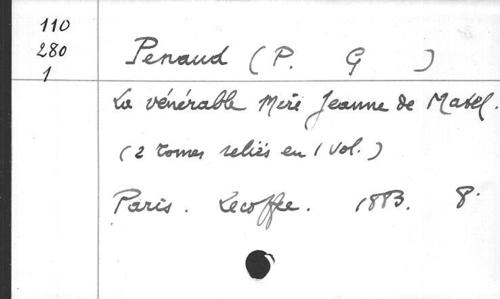 110
280
1
Penaud (P. G )
La vénérable Mère Jeanne de Matel.
(2 tomes reliés en 1 vol.)
Paris. Lecoffre. 1883. 8.